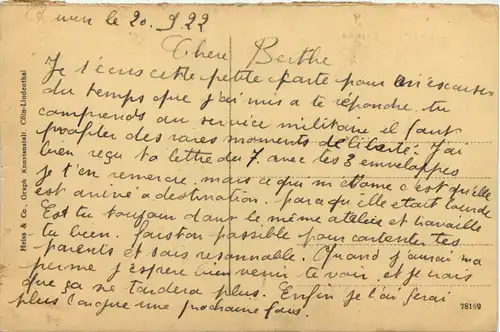 le 20. 9 22
Chere Berthe
Je t'ecris cette petite carte pour m'escuser
du temps que j'ai mis a te répondre. tu
comprends au service militaire il faut
profiter des rares moments de liberté. J'ai
bien reçu ta lettre du 7 avec les 3 enveloppes
je t'en remercie. mais ce qui m'étonne c'est qu'elle
est arrivé a destination. parcequ'elle etait lourde
Est tu toujours dans le même atelier et travaille
tu bien. fais ton possible pour contenter tes
parents et sois raisonnable. Quand j'aurai ma
perme j'espere bien venir te voir, et je crois
que ça ne tardera plus. Enfin je t'ai ferai
plus longue une prochaine fois.
Heiss & Co., Graph. Kunstanstalt. Cöln-Lindenthal
78169